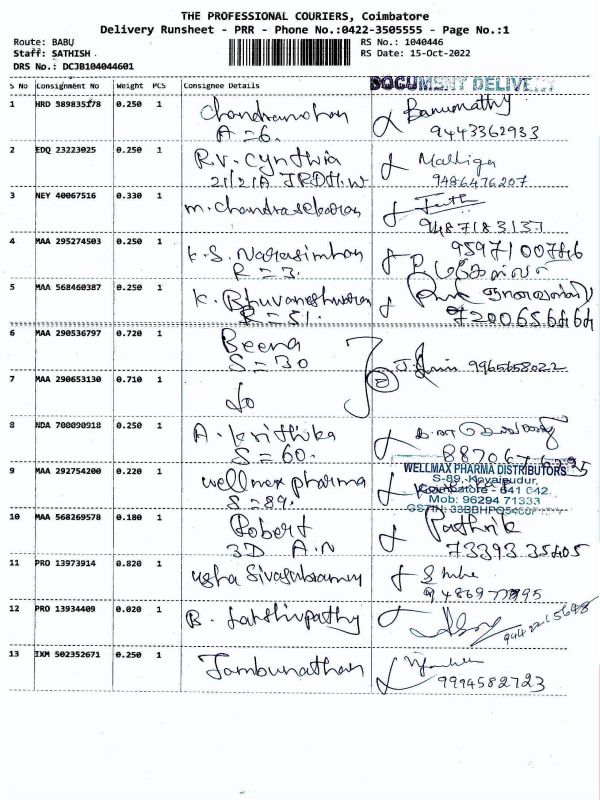 THE PROFESSIONAL COURIERS, Coimbatore
Delivery Runsheet - PRR - Phone No.:0422-3505555 - Page No.:1
Route: BABU
Staff: SATHISH
DRS No.: DCJB104044601
RS No.: 1040446
RS Date: 15-Oct-2022
S No Consignment No Weight PCS Consignee Details DOCUMENT DELIVE
1 HRD 589835178 0.250 1 Chandramohan Banumathy
A = 6. 9443362933
2 EDQ 23223025 0.250 1 R.V. Cynthia Malliga
21/21A JRDH.W 9486476207
3 NEY 40067516 0.330 1 M. Chandrasekaran
9487183137
4 MAA 295274503 0.250 1 K.S. Narasimhan 9597100746
R = 3.
5 MAA 568460387 0.250 1 K. Bhuvaneshwaran
R = 51. 7200656464
6 MAA 290536797 0.720 1 Beena
S = 30 9965658022
7 MAA 290653130 0.710 1 do 2
8 NDA 700090918 0.250 1 A. Krithika
S = 60.
9 MAA 292754200 0.220 1 wellmax pharma WELLMAX PHARMA DISTRIBUTORS
S = 89. S-89, Kovaipudur,
Coimbatore - 641 042.
Mob: 96294 71333
10 MAA 568269578 0.180 1 Robert Parthik
3D A.N 73393 35405
11 PRO 13973914 0.820 1 usha Sivasubramany
12 PRO 13934409 0.020 1 B. Lakshipathy
9442215698
13 IXM 502352671 0.250 1 Jambunathan
9994582723